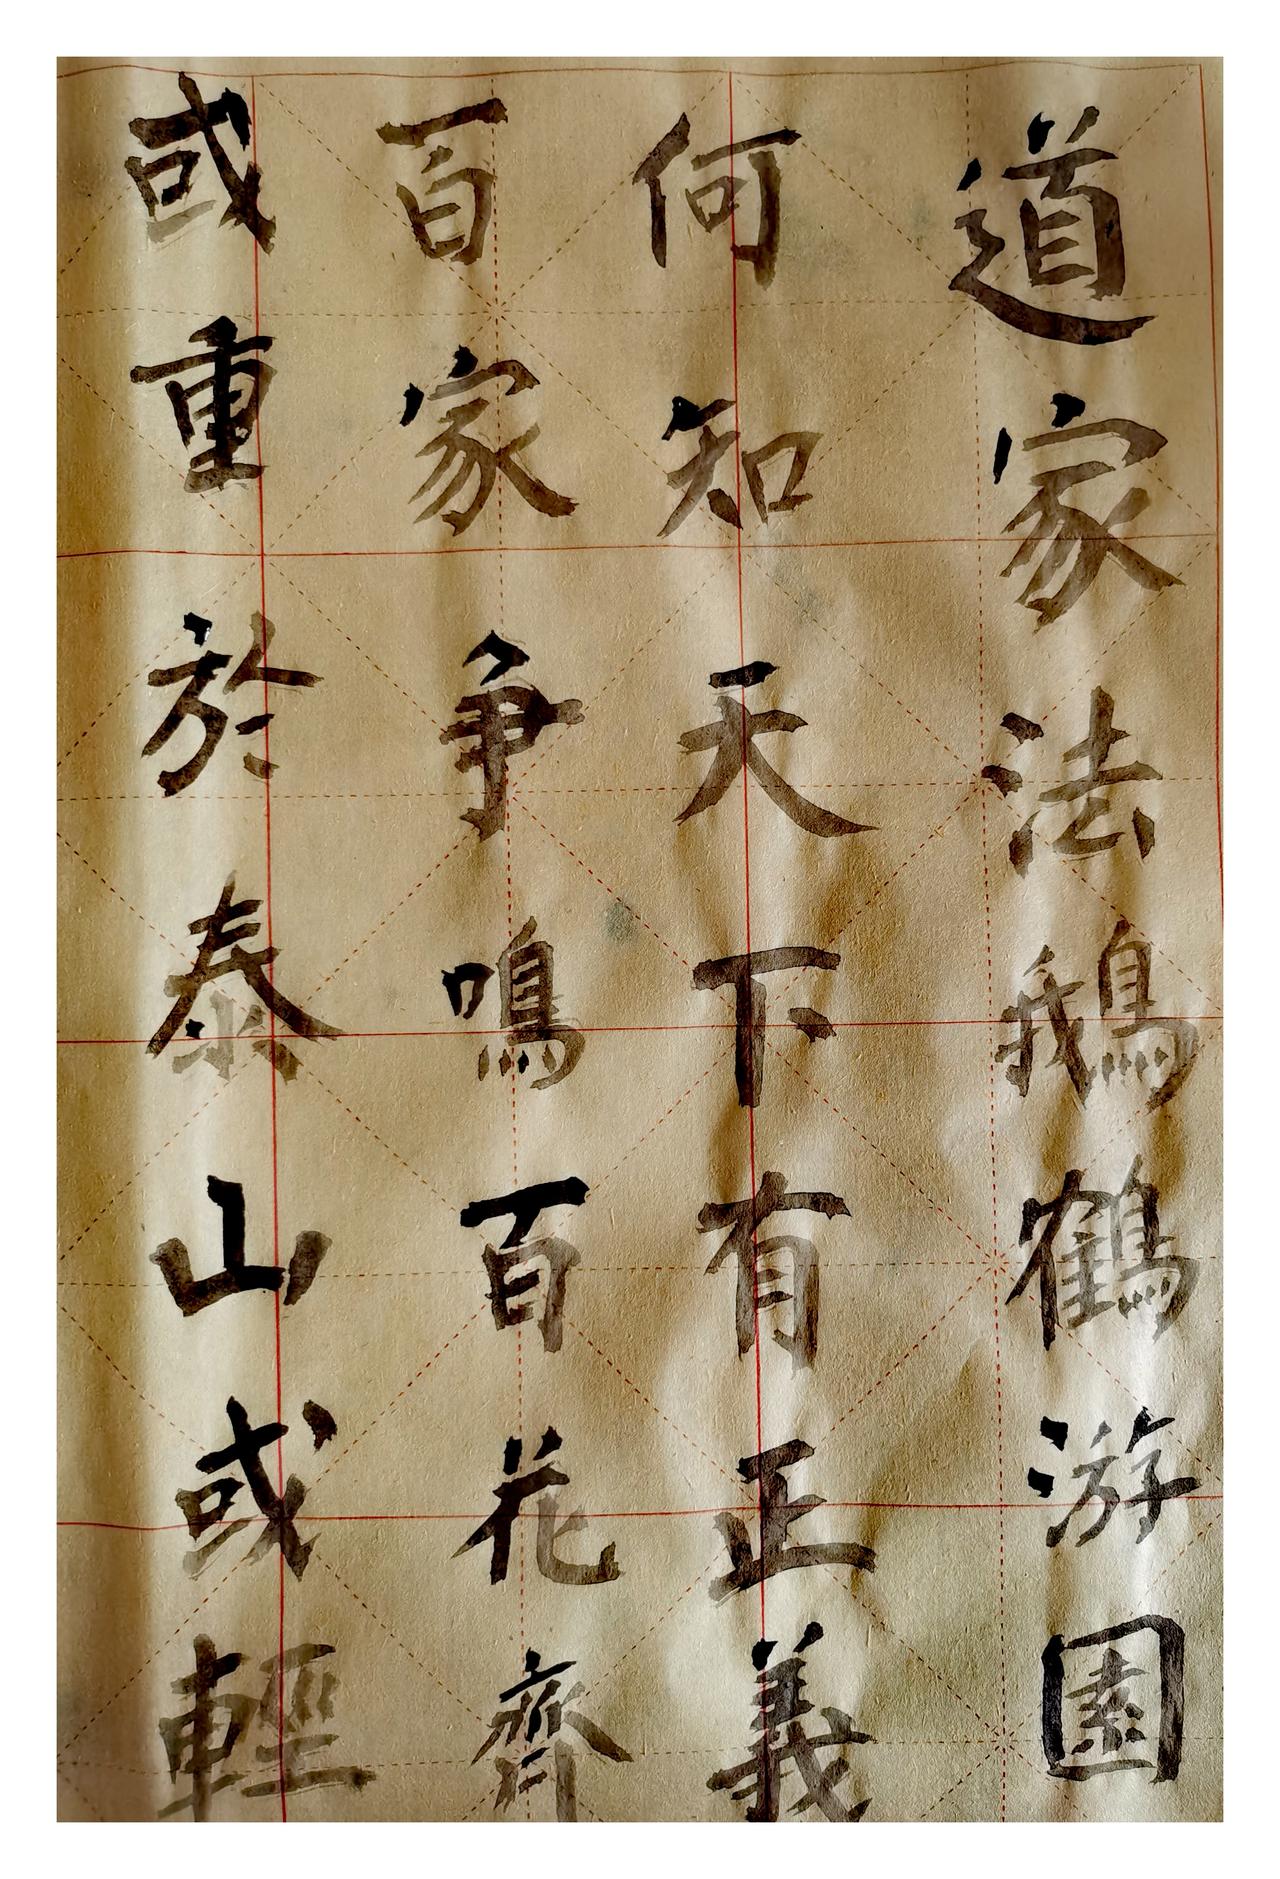 道家法鵝鶴游園
何知天下有正義
百家争鳴百花齊
或重於泰山或輕